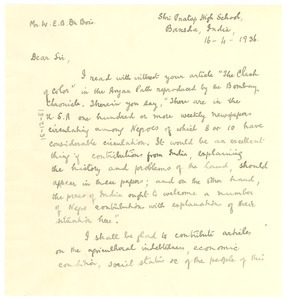 Shri Pratap High School,
Mr W. E. B. Du Bois
Bansda, India.
16-4-1936.
Dear Sir,
I read with interest your article "The Clash
of color" in the Aryan Path reproduced by the Bombay
chronicle. Therein you say, "There are in the
U.S.A one hundred or more weekly newspaper
circulating among Negroes of which 8 or 10 have
considerable circulation. It would be an excellent
thing if contributions from India, explaining
the history and problems of the land should
appear in these papers; and on the other hand,
the press of India ought to welcome a number
of Negro contribution with explanation of their
situation here".
I shall be glad to contribute articles
on the agricultural indebtedness, economic
condition, social status &c of the people of this